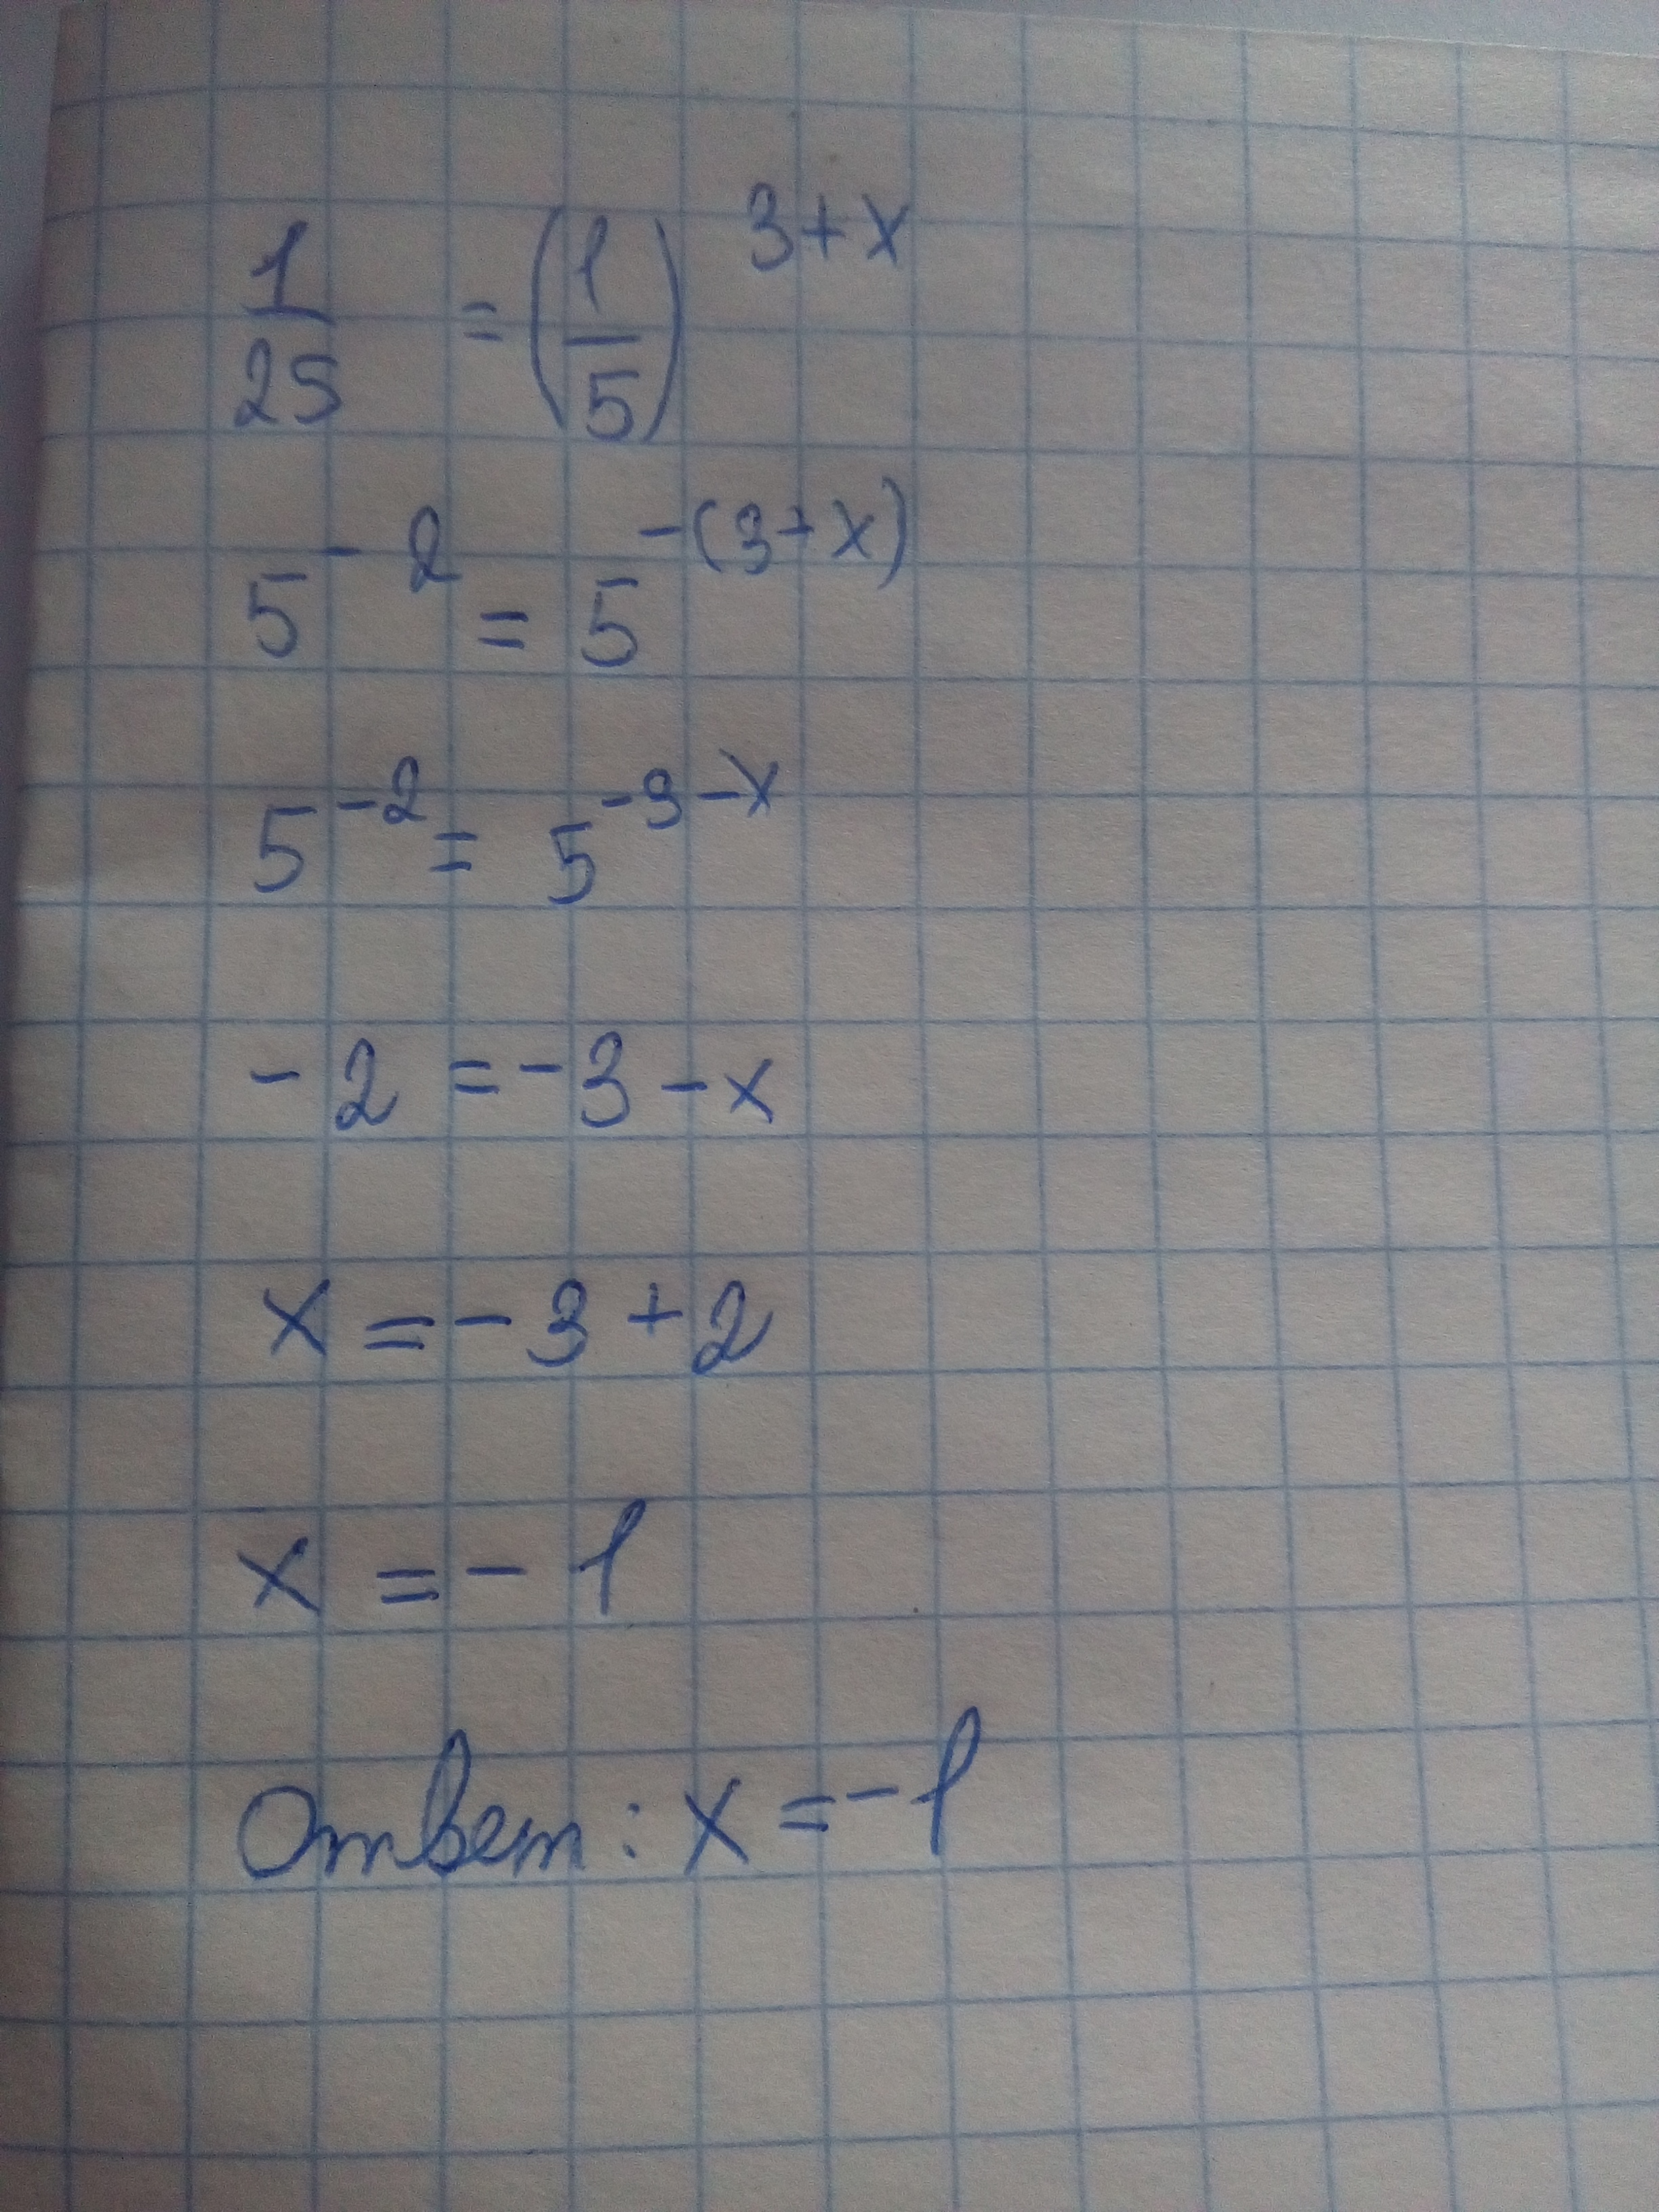 1/25 = (1/5)^(3+x)
5^(-2) = 5^(-(3+x))
5^(-2) = 5^(-3-x)
-2 = -3-x
x = -3+2
x = -1
Ответ: x = -1